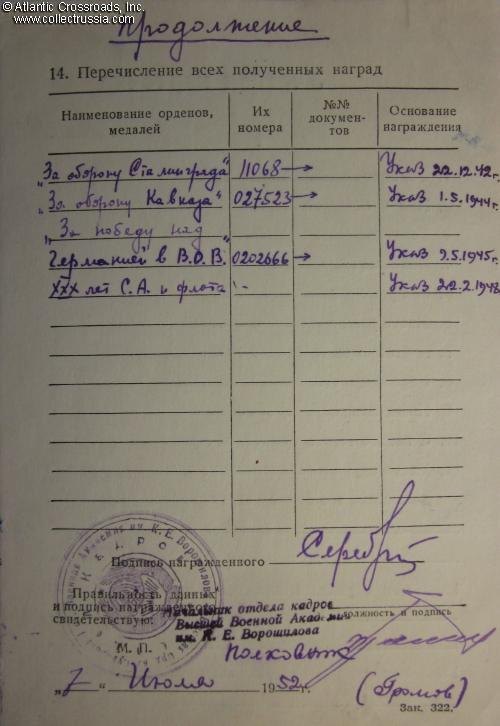 © Atlantic Crossroads, Inc.
www.collectrussia.com
Продолжение
14. Перечисление всех полученных наград
Наименование орденов, медалей
Их номера
№№ докумен-тов
Основание награждения
"За оборону Сталинграда" 11068 → Указ 22.12.42
"За оборону Кавказа" 027523 → Указ 1.5.1944г.
"За победу над
Германией в В.О.В." 0202666 → Указ 9.5.1945г.
XXX лет С.А. и флота "- Указ 22.2.1948
Подпись награжденного
Правильность данных
и подпись награжденного
свидетельствую:
Начальник отдела кадров
Высшей Военной Академии
им. К. Е. Ворошилова
должность и подпись
М. П.
Полковник
"7" Июля 1952г.
(Громов)
Зак. 322.